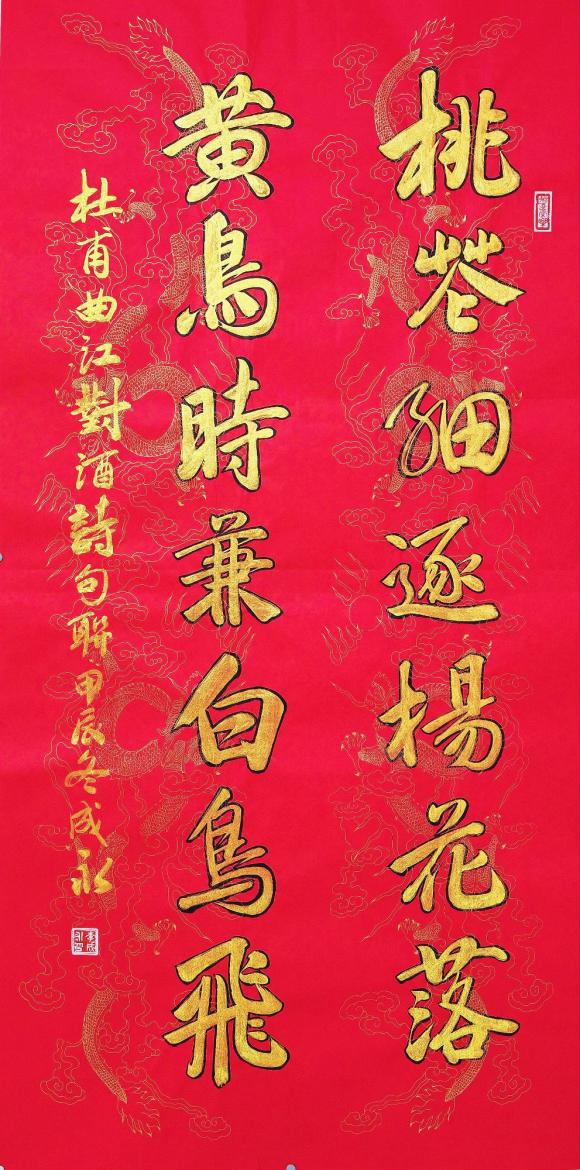 桃芲細逐楊花落
黃鳥時兼白鳥飛
杜甫曲江對酒詩句聯甲辰冬成永